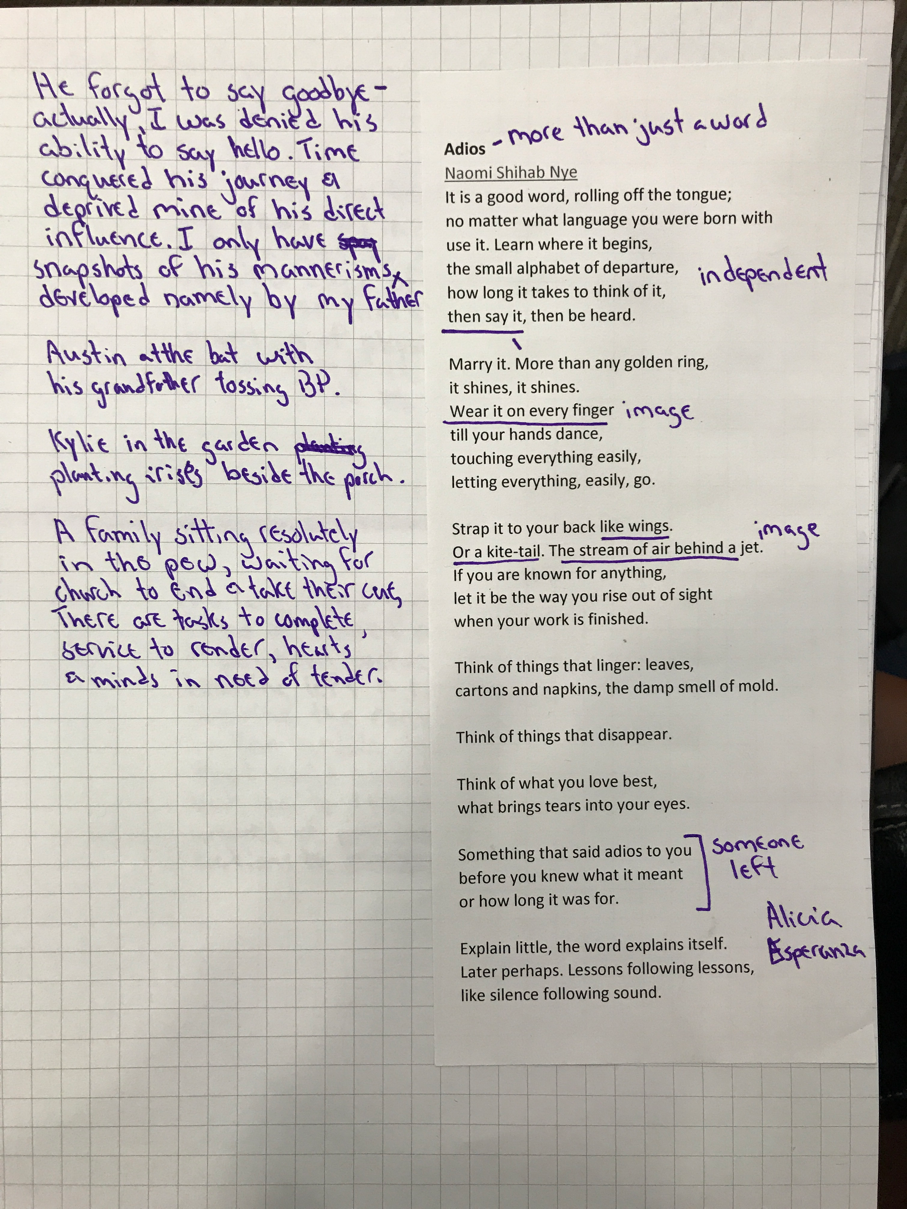 He forgot to say goodbye-
actually, I was denied his
ability to say hello. Time
conquered his journey &
deprived mine of his direct
influence. I only have
snapshots of his mannerisms,
developed namely by my father

Austin at the bat with
his grandfather tossing BP.

Kylie in the garden planting
planting irises beside the porch.

A family sitting resolutely
in the pew, waiting for
church to end & take their cue,
There are tasks to complete,
service to render, hearts
& minds in need of tender.

Adios - more than just a word
Naomi Shihab Nye
It is a good word, rolling off the tongue;
no matter what language you were born with
use it. Learn where it begins,
the small alphabet of departure, independent
how long it takes to think of it,
then say it, then be heard.

Marry it. More than any golden ring,
it shines, it shines.
Wear it on every finger image
till your hands dance,
touching everything easily,
letting everything, easily, go.

Strap it to your back like wings. image
Or a kite-tail. The stream of air behind a jet.
If you are known for anything,
let it be the way you rise out of sight
when your work is finished.

Think of things that linger: leaves,
cartons and napkins, the damp smell of mold.

Think of things that disappear.

Think of what you love best,
what brings tears into your eyes.

Something that said adios to you someone
before you knew what it meant left
or how long it was for.
Alicia
Esperanza

Explain little, the word explains itself.
Later perhaps. Lessons following lessons,
like silence following sound.